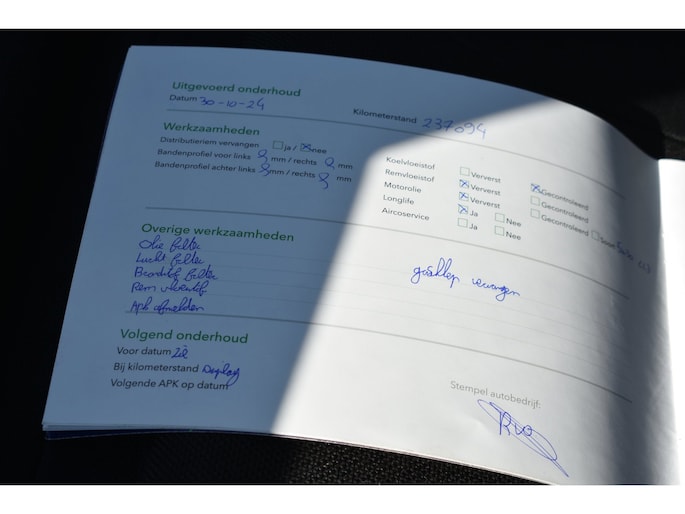 Uitgevoerd onderhoud
Datum 30-10-24
Kilometerstand 237094
Werkzaamheden
Distributieriem vervangen ja / nee
Bandenprofiel voor links mm / rechts mm
Bandenprofiel achter links mm / rechts mm
Koelvloeistof Ververst Gecontroleerd
Remvloeistof Ververst Gecontroleerd
Motorolie Ververst Gecontroleerd Soort
Longlife Ja Nee
Aircoservice Ja Nee
Overige werkzaamheden
Olie filter
Lucht filter
Brandstof filter
Rem vloeistof
Apk afmelden
gasklep vervangen
Volgend onderhoud
Voor datum zie
Bij kilometerstand Display
Volgende APK op datum
Stempel autobedrijf: